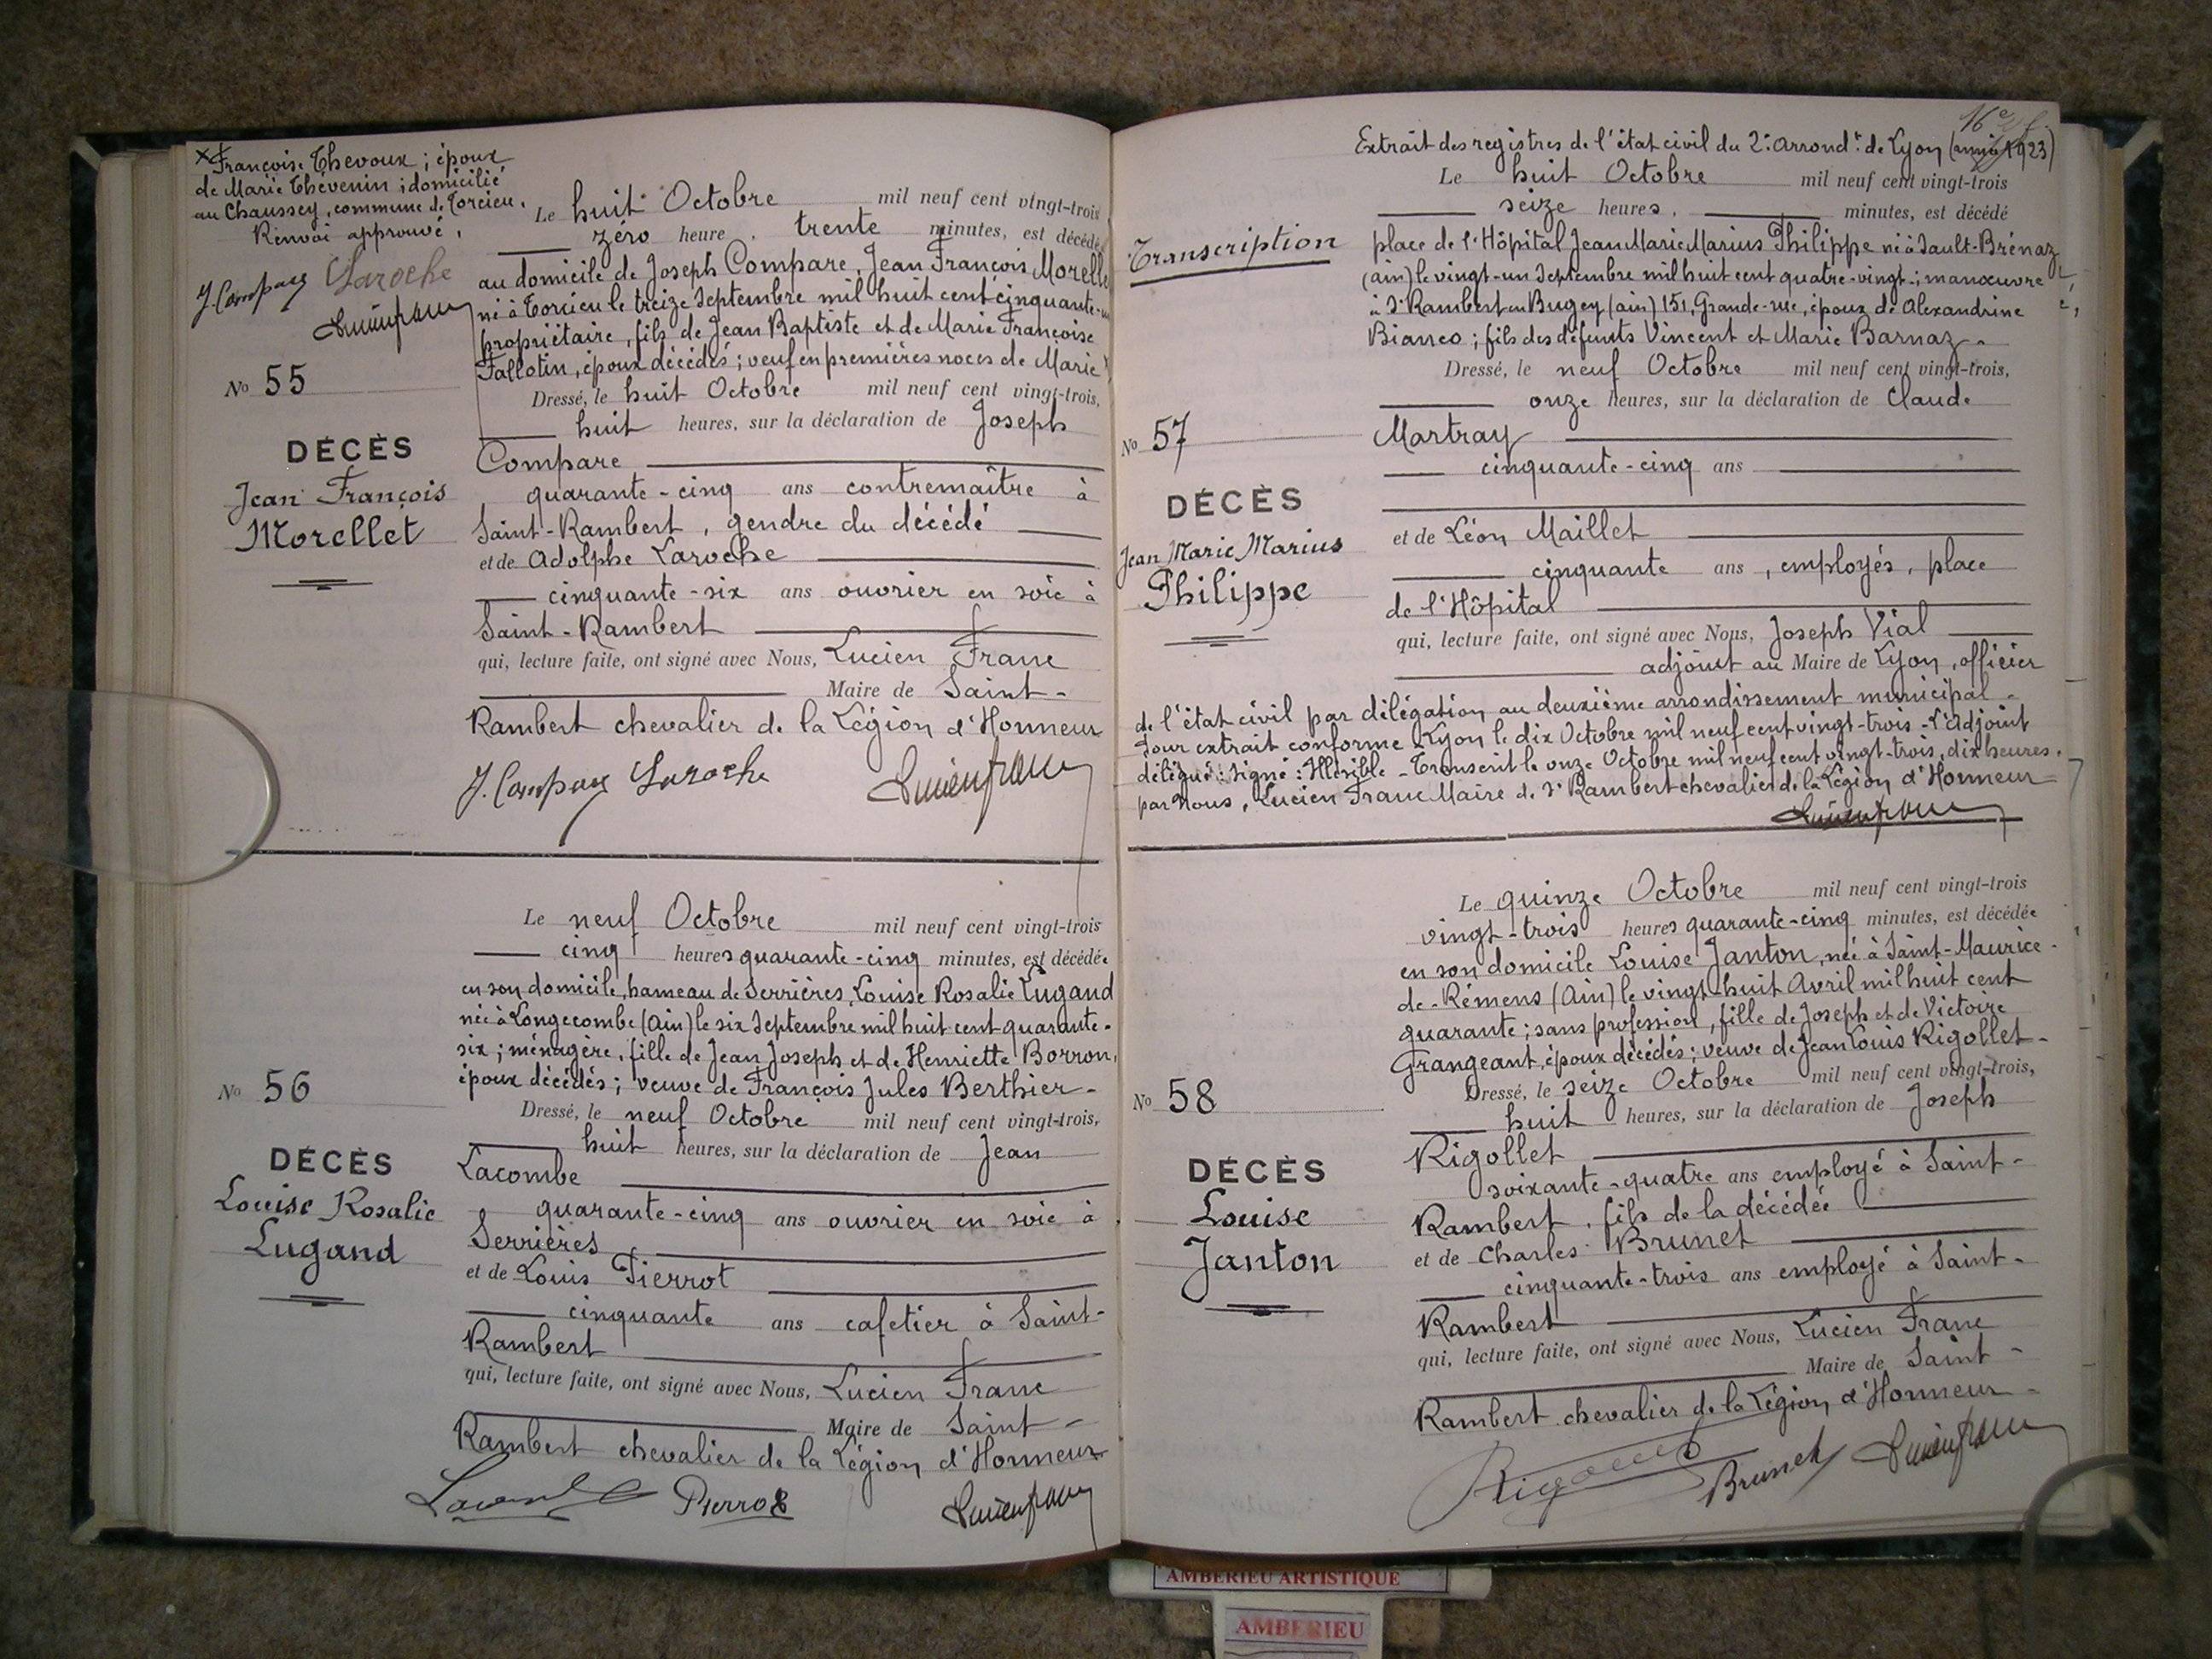 x Françoise Thevoux ; époux
de Marie Thévenin ; domicilié
au Chaussey, commune de Torcieu.
Renvoi approuvé.
J. Compare Laroche
Lucien Franc
Le huit Octobre mil neuf cent vingt-trois
zéro heure, trente minutes, est décédé
au domicile de Joseph Compare, Jean François Morellet
né à Torcieu le treize Septembre mil huit cent cinquante-
propriétaire, fils de Jean Baptiste et de Marie Françoise
Fallotin, époux décédés ; veuf en premières noces de Marie x
No 55
DÉCÈS
Jean François
Morellet
Dressé, le huit Octobre mil neuf cent vingt-trois,
huit heures, sur la déclaration de Joseph
Compare
quarante-cinq ans contremaître à
Saint-Rambert, gendre du décédé
et de Adolphe Laroche
cinquante-six ans ouvrier en soie à
Saint-Rambert
qui, lecture faite, ont signé avec Nous, Lucien Franc
Maire de Saint-
Rambert chevalier de la Légion d'Honneur
J. Compare Laroche Lucien Franc
Le neuf Octobre mil neuf cent vingt-trois
cinq heures quarante-cinq minutes, est décédée
en son domicile, hameau de Serrières, Louise Rosalie Lugand
née à Longecombe (Ain) le six Septembre mil huit cent quarante-
six ; ménagère, fille de Jean Joseph et de Henriette Borron,
époux décédés ; veuve de François Jules Berthier -
No 56
DÉCÈS
Louise Rosalie
Lugand
Dressé, le neuf Octobre mil neuf cent vingt-trois,
huit heures, sur la déclaration de Jean
Lacombe
quarante-cinq ans ouvrier en soie à
Serrières
et de Louis Pierrot
cinquante ans cafetier à Saint-
Rambert
qui, lecture faite, ont signé avec Nous, Lucien Franc
Maire de Saint-
Rambert chevalier de la Légion d'Honneur
Lacombe Pierrot Lucien Franc
16e
Extrait des registres de l'état civil du 2e: arrondt: de Lyon (1923)
Le huit Octobre mil neuf cent vingt-trois
seize heures, minutes, est décédé
Transcription
place de l'Hôpital Jean Marie Marius Philippe né à Sault-Brénaz
(ain) le vingt-un Septembre mil huit cent quatre-vingt- ; manœuvre
à St Rambert en Bugey (ain) 151, Grande-rue, époux de Alexandrine
Bianco ; fils des défunts Vincent et Marie Barnaz -
No 57
DÉCÈS
Jean Marie Marius
Philippe
Dressé, le neuf Octobre mil neuf cent vingt-trois,
onze heures, sur la déclaration de Claude
Martray
cinquante-cinq ans
et de Léon Maillet
cinquante ans, employés, place
de l'Hôpital
qui, lecture faite, ont signé avec Nous, Joseph Vial
adjoint au Maire de Lyon, officier
de l'état civil par délégation au deuxième arrondissement municipal -
Pour extrait conforme - Lyon le dix Octobre mil neuf cent vingt-trois - L'adjoint
délégué : Signé : Illisible - Transcrit le onze Octobre mil neuf cent vingt-trois, dix heures.
par Nous, Lucien Franc Maire de St Rambert chevalier de la Légion d'Honneur
Lucien Franc
Le quinze Octobre mil neuf cent vingt-trois
vingt-trois heures quarante-cinq minutes, est décédée
en son domicile Louise Janton, née à Saint-Maurice-
de-Rémens (Ain) le vingt-huit Avril mil huit cent
quarante ; sans profession, fille de Joseph et de Victoire
Grangeant, époux décédés ; veuve de Jean Louis Rigollet -
No 58
DÉCÈS
Louise
Janton
Dressé, le seize Octobre mil neuf cent vingt-trois,
huit heures, sur la déclaration de Joseph
Rigollet
soixante-quatre ans employé à Saint-
Rambert, fils de la décédée
et de Charles Brunet
cinquante-trois ans employé à Saint-
Rambert
qui, lecture faite, ont signé avec Nous, Lucien Franc
Maire de Saint-
Rambert chevalier de la Légion d'Honneur -
Rigollet Brunet Lucien Franc
AMBERIEU ARTISTIQUE
AMBERIEU